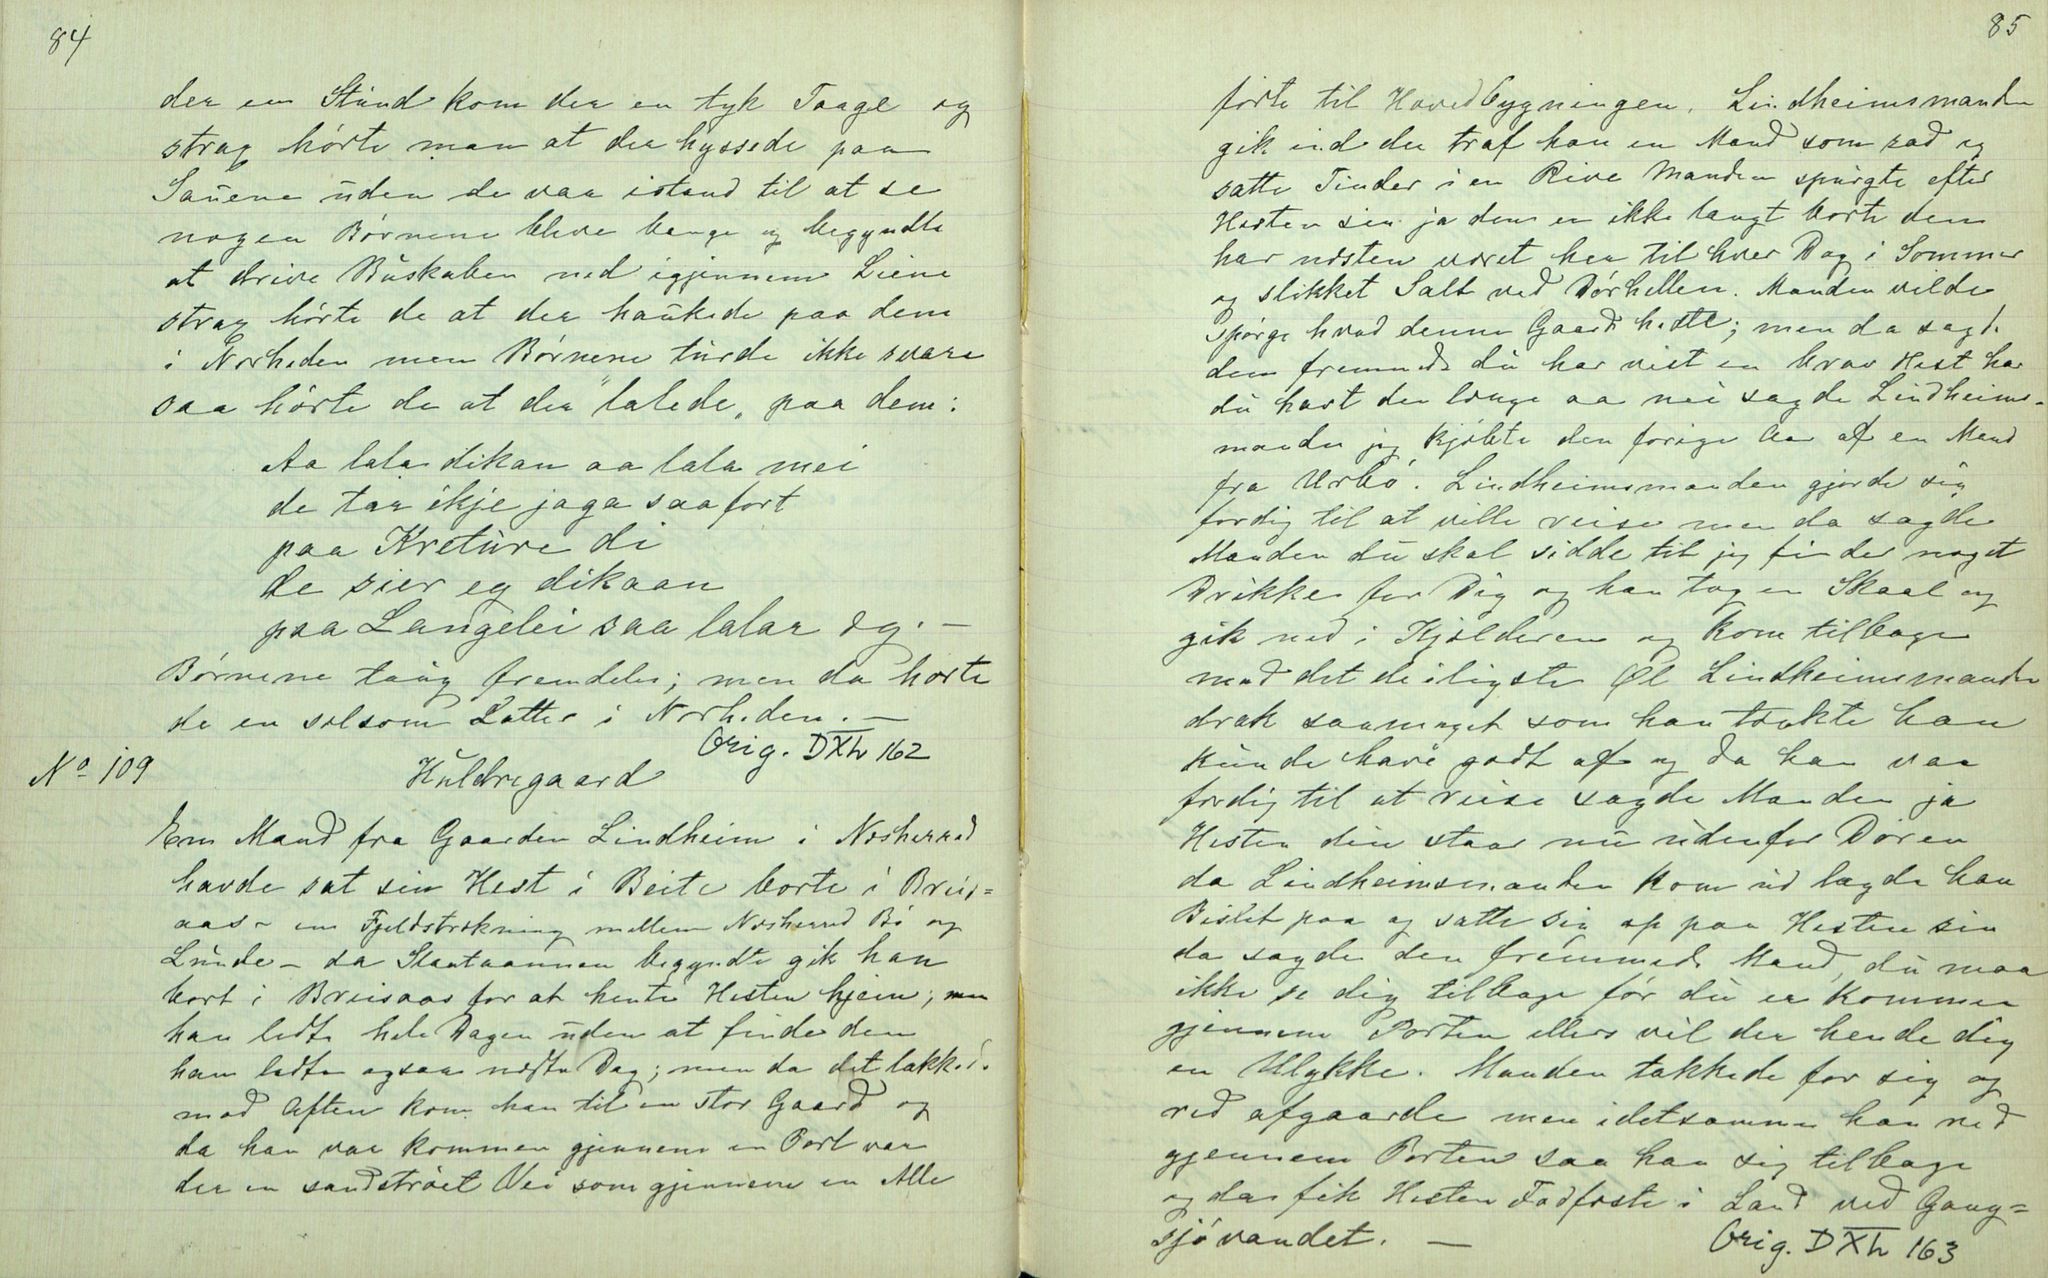 84
der en Stünd kom der en tyk Taage og
strax hörte man at der hyssede paa
Saüene üden de var istand til at se
nogen Börnene bleve bange og begyndte
at drive Büskaben ned igjennem Liene
strax hörte de at der haükede paa dem
i Nærheden men Börnene türde ikke svare
saa hörte de at der "lalede" paa dem:
Aa lala dikan aa lala mei
de tar ikje jaga saa fort
paa Kretüre di
de sier eg dikaan
paa Langelei saa lalar eg. —
Börnene taüg fremdeles; men da hörte
de en selsom Latter i Nærheden. —
Orig. D XL 162
No 109
Hüldregaard
Em Mand fra Gaarden Lindheim i Nesherred
havde sat sin Hest i Beite borte i Breis=
aas - en Fjeldstrekning mellem Nesherred Bö og
Lünde - da Slaataannen begyndte gik han
bort i Breisaas for at hente Hesten hjem; men
han ledte hele Dagen üden at finde den
han ledte ogsaa neste Dag; men da det lakked.
mod Aften kom han til en stor Gaard og
da han var kommen gjennem en Port var
der en sandströet Vei som gjennem en Alle
85
förte til Hovedbygningen. Lindheimsmanden
gik ind der traf han en Mand som sad og
satte Tinder i en Rive Manden spürgte efter
Hesten sin ja den er ikke langt borte den
har nesten veret her til hver Dag i Sommer
og slikket Salt ved Dörhellen. Manden vilde
spörge hvad denne Gaard hedte; men da sagde
den fremmede dü har vist en brav Hest har
dü havt den lenge aa nei sagde Lindheims-
manden jeg kjöbte den forige Aar af en Mand
fra Urbö. Lindheimsmanden gjorde sig
ferdig til at ville reise men da sagde
Manden dü skal sidde til jeg finder noget
Drikke for Dig og han tog en Skaal og
gik ned i Kjelderen og kom tilbage
med det deiligste Øl Lindheimsmanden
drak saameget som han tænkte han
künde have godt af og da han var
ferdig til at reise sagde Manden ja
Hesten din staar nü üdenfor Dören
da Lindheimsmanden kom üd lagde han
Bislet paa og satte sig op paa Hesten sin
da sagde den fremmede Mand, dü maa
ikke se dig tilbage för dü er kommen
gjennem Porten ellers vil der hende dig
en Ulykke. Manden takkede for sig og
red afgaarde men idetsamme han red
gjennem Porten saa han sig tilbage
og da fik Hesten Fodfeste i Land ved Gang=
sjövandet. —
Orig. D XL 163